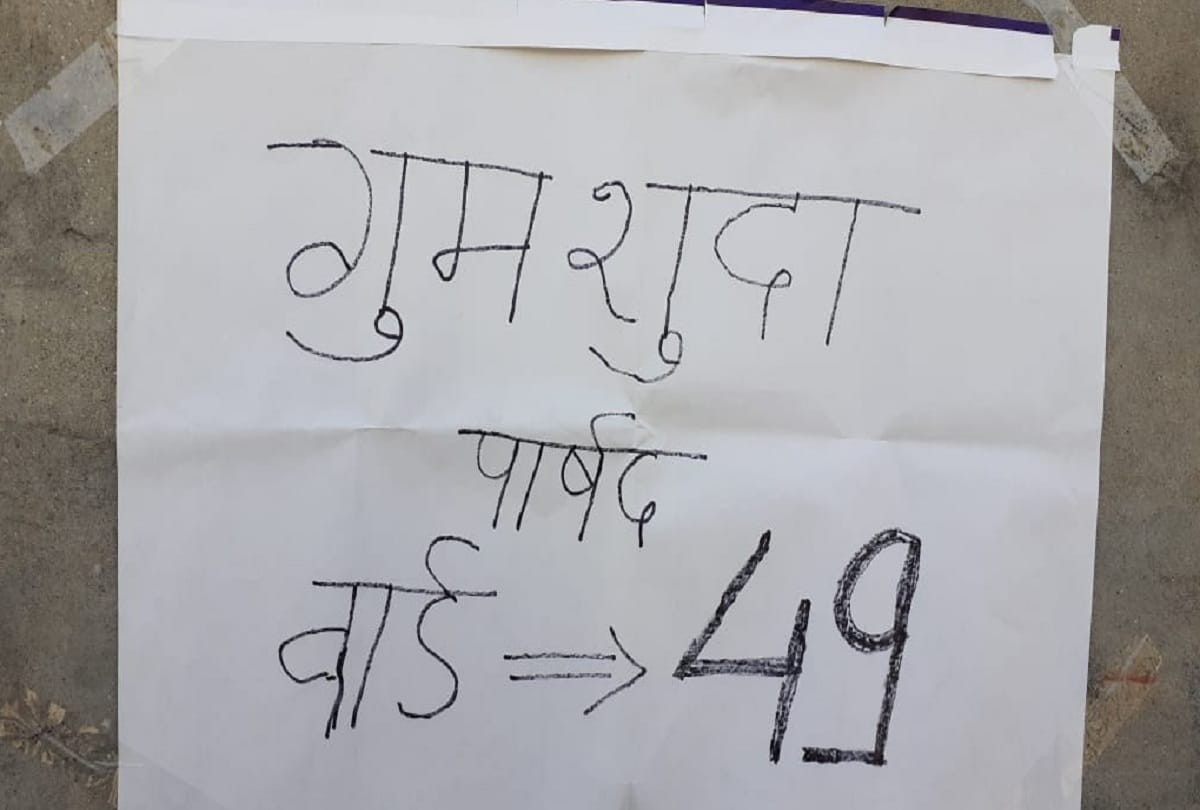 गुमशुदा
पार्षद
वार्ड ⇒ 49